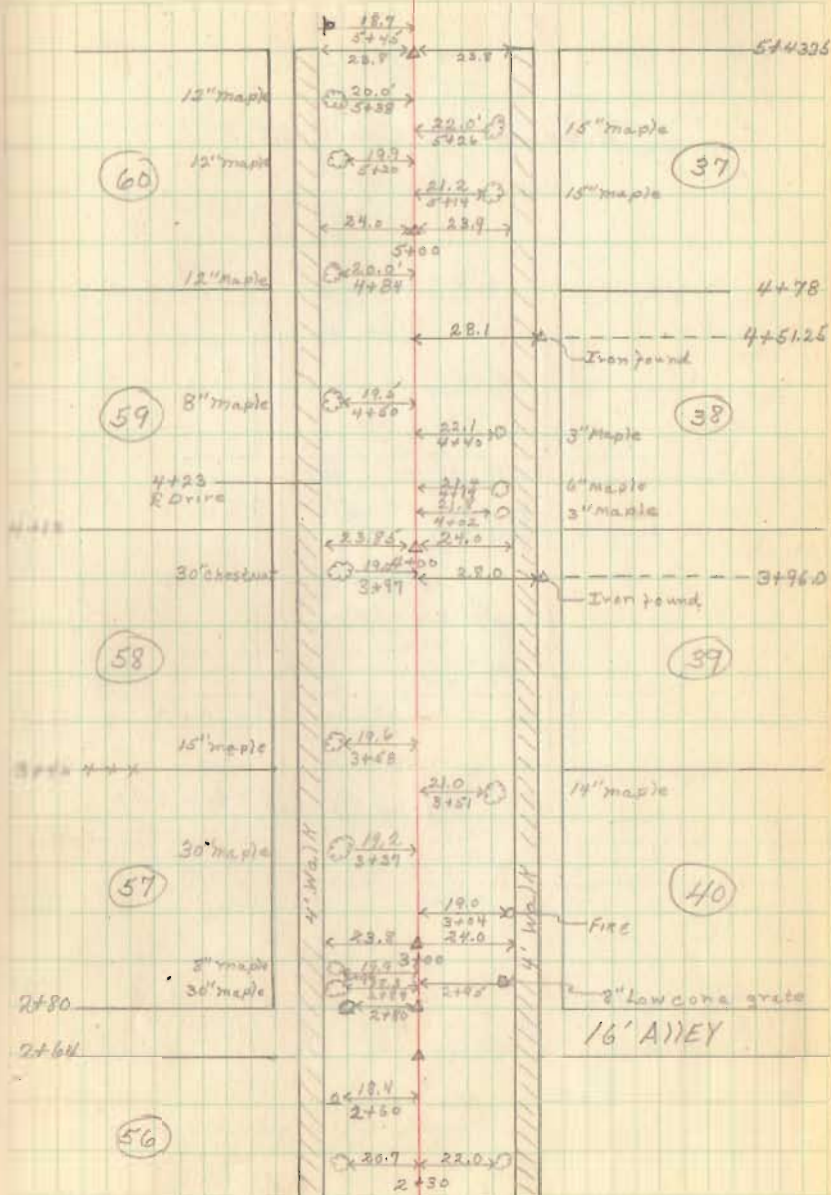 18.7
5+45
23.8 23.8 5+43.25
12" maple 20.0' 5+38
22.0' 5+26 15" maple
60 12" maple 19.9 5+20 37
21.2 5+14 15" maple
24.0 23.9
5+00
12" Maple 20.0' 4+84
4+78
28.1 4+51.25
Iron found
59 8" maple 19.5 4+50 38
22.1 4+40 3" Maple
4+23
Drive
4+14 6" Maple
4+02 3" Maple
23.85 4+00 24.0
30" chestnut 3+97 28.0 3+96.0
Iron found
58 39
15" maple 19.6 3+58
21.0 3+51 14" maple
30" maple 19.2 3+37
57 4' Walk 40
19.0 3+04 Fire
23.8 24.0 4' Walk
3+00
8" maple
30" maple 2+95 8" Low cona grate
2+80 2+80
16' ALLEY
2+64
18.4
2+60
56
20.7 22.0
2+30